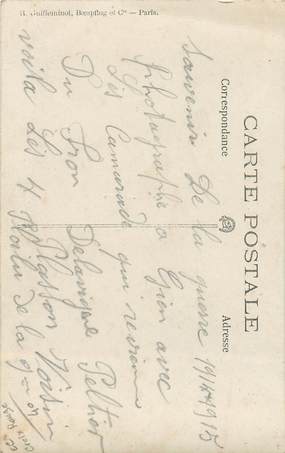 R. Guilleminot, Boespflug et Cie — Paris.
CARTE POSTALE
Correspondance
Adresse
Souvenir De la guerre 1914 1915
photographe a Gien avec
Les Camarade qui revienne
Du Fron Delavigne Peltier
Voisin
voila Les 4 Poilu de la
Croix Rouge